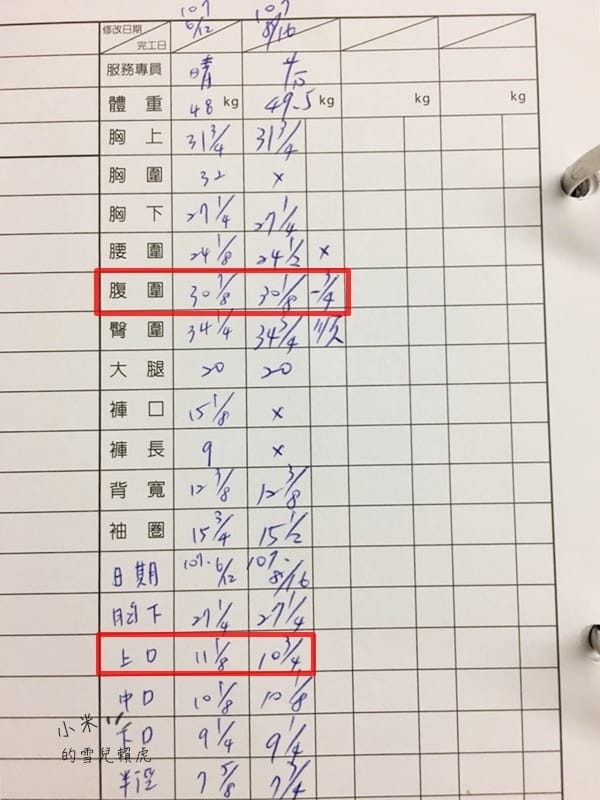 107 107
修改日期 6/12 8/16
完工日
服務專員 晴
體重 48 kg 49.5 kg kg kg
胸上 31 3/4 31 3/4
胸圍 32 x
胸下 27 1/4 27 1/4
腰圍 24 1/8 24 1/2 x
腹圍 30 7/8 30 1/8 -3/4
臀圍 34 1/4 34 3/4
大腿 20 20
褲口 15 1/8 x
褲長 9 x
背寬 12 3/8 12 3/8
袖圈 15 3/4 15 1/2
日期 107.6/12 107.8/16
胸下 27 1/4 27 1/4
上口 11 1/8 10 3/4
中口 10 1/8 10 1/8
小米
下口 9 1/4 9 1/4
的雪兒賴虎
半徑 7 5/8 7 3/4